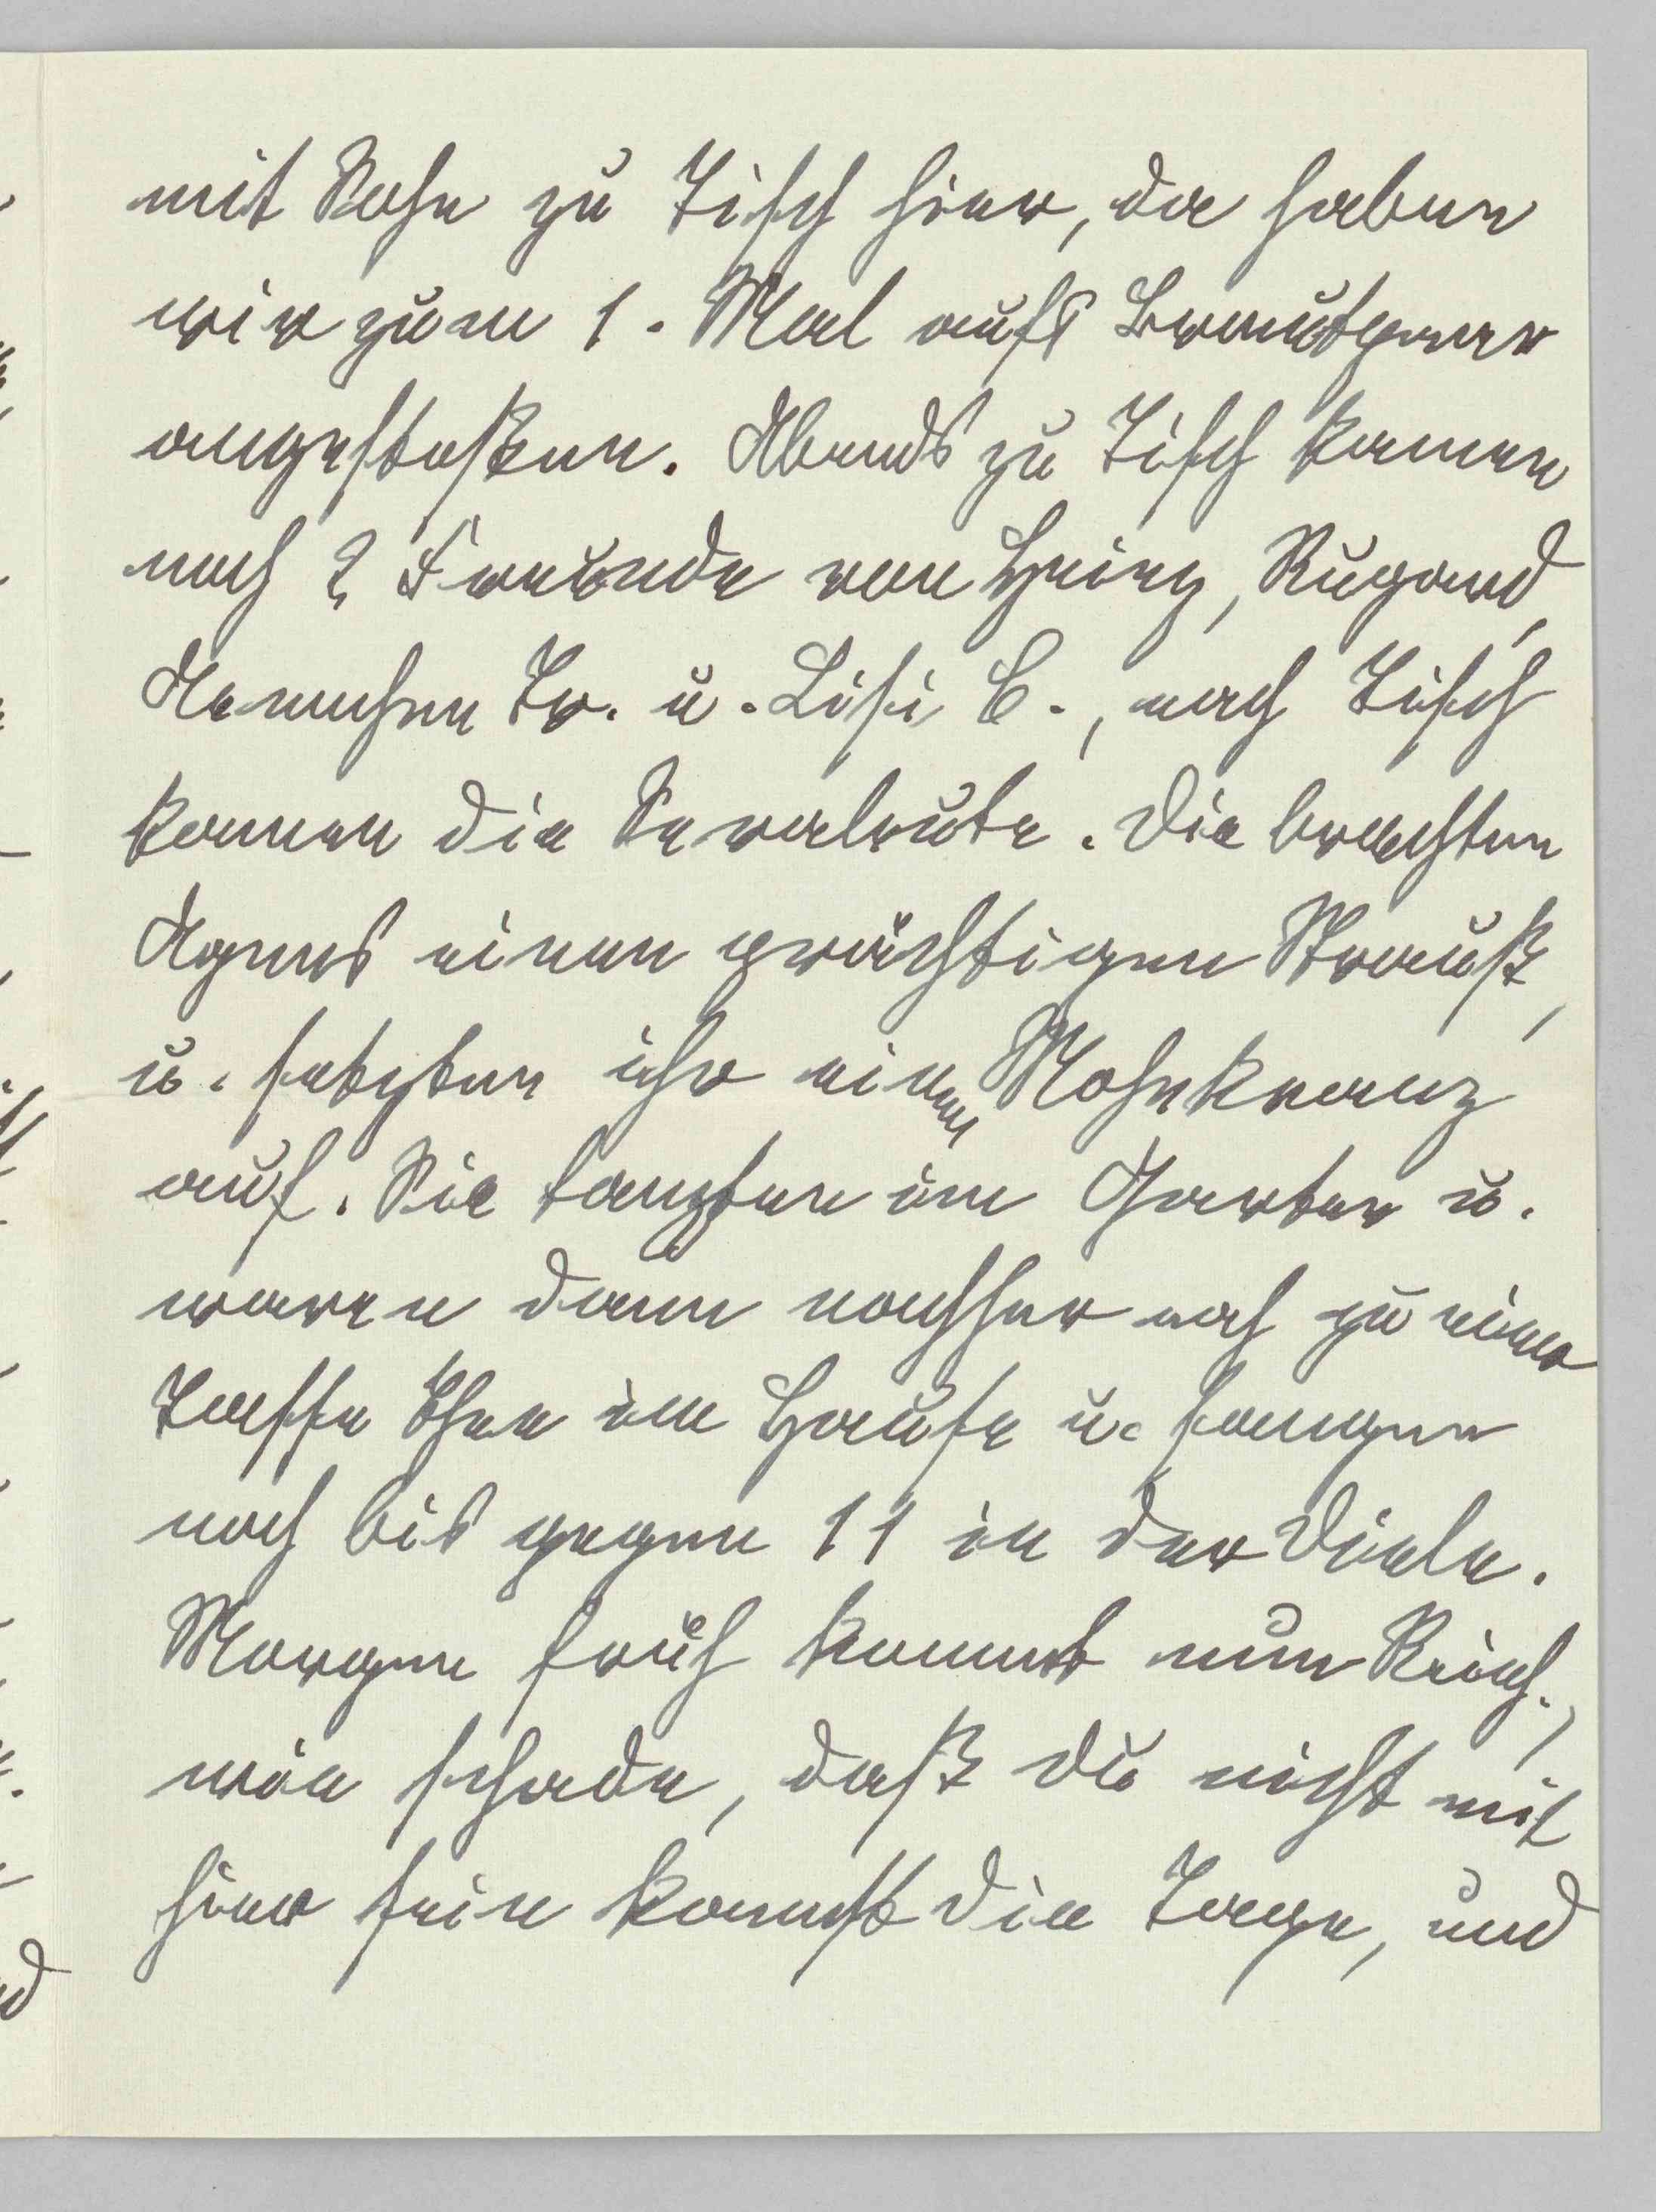 mit Sohn zu Tisch hier, da haben
wir zum 1. Mal aufs Brautpaar
angestoßen. Abends zu Tisch kamen
noch 2 Freunde von Heinz, Rugard,
Annchen Tr. u. Lisi C., nach Tisch
kamen die Seealeute. Die brachten
Agnes einen prächtigen Strauß,
u. setzten ihr einen Mohnkranz
auf. Sie tanzten im Garten u.
waren dann nachher noch zu einer
Tasse Thee im Hause u. sangen
noch bis gegen 11 in der Diele.
Morgen früh kommt nun Reich.,
wie schade, daß Du nicht mit
hier sein kannst die Tage, und